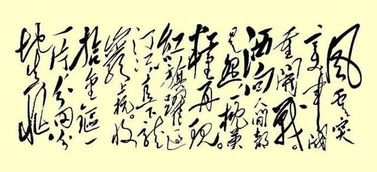 風雲突
变軍阀
重開戰。
洒向人间都
是怨一枕黄
粱再现。
红旗躍过
汀江直下龙
岩上杭。收
拾金甌一
片分田分
地真忙